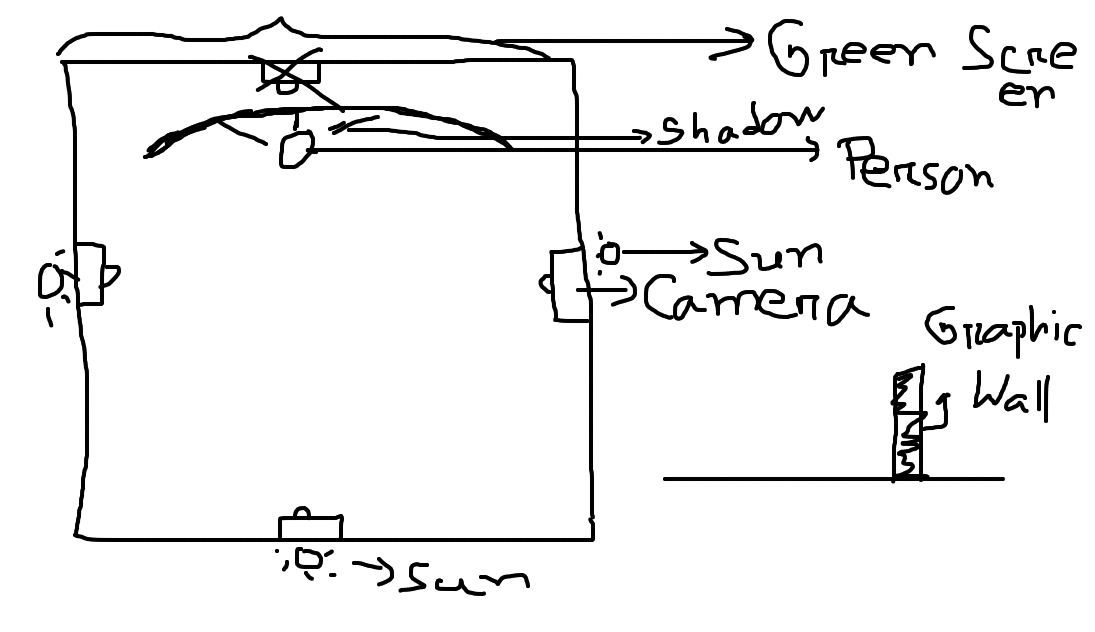 Green Scre
en
Shadow
Person
Sun
Camera
Graphic
Wall
Sun